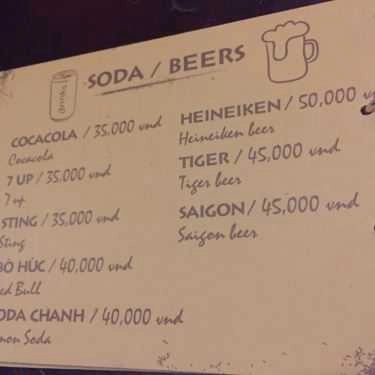 drinks
SODA / BEERS
COCACOLA / 35,000 vnd
Cocacola
7 UP / 35,000 vnd
7 up
STING / 35,000 vnd
Sting
BÒ HÚC / 40,000 vnd
ed Bull
ODA CHANH / 40,000 vnd
mon Soda
HEINEIKEN / 50,000 v
Heineiken beer
TIGER / 45,000 vnd
Tiger beer
SAIGON / 45,000 vnd
Saigon beer